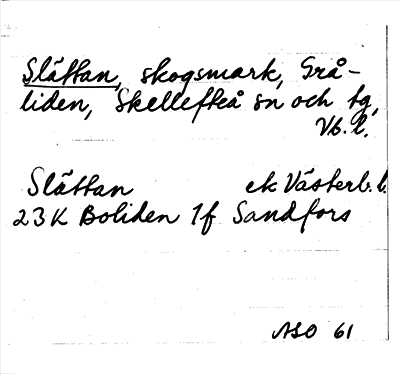 Slättan, skogsmark, Grå-
liden, Skellefteå sn och tg,
Vb. l.
Slättan ek Västerb. l.
23K Boliden 1f Sandfors
ASO 61